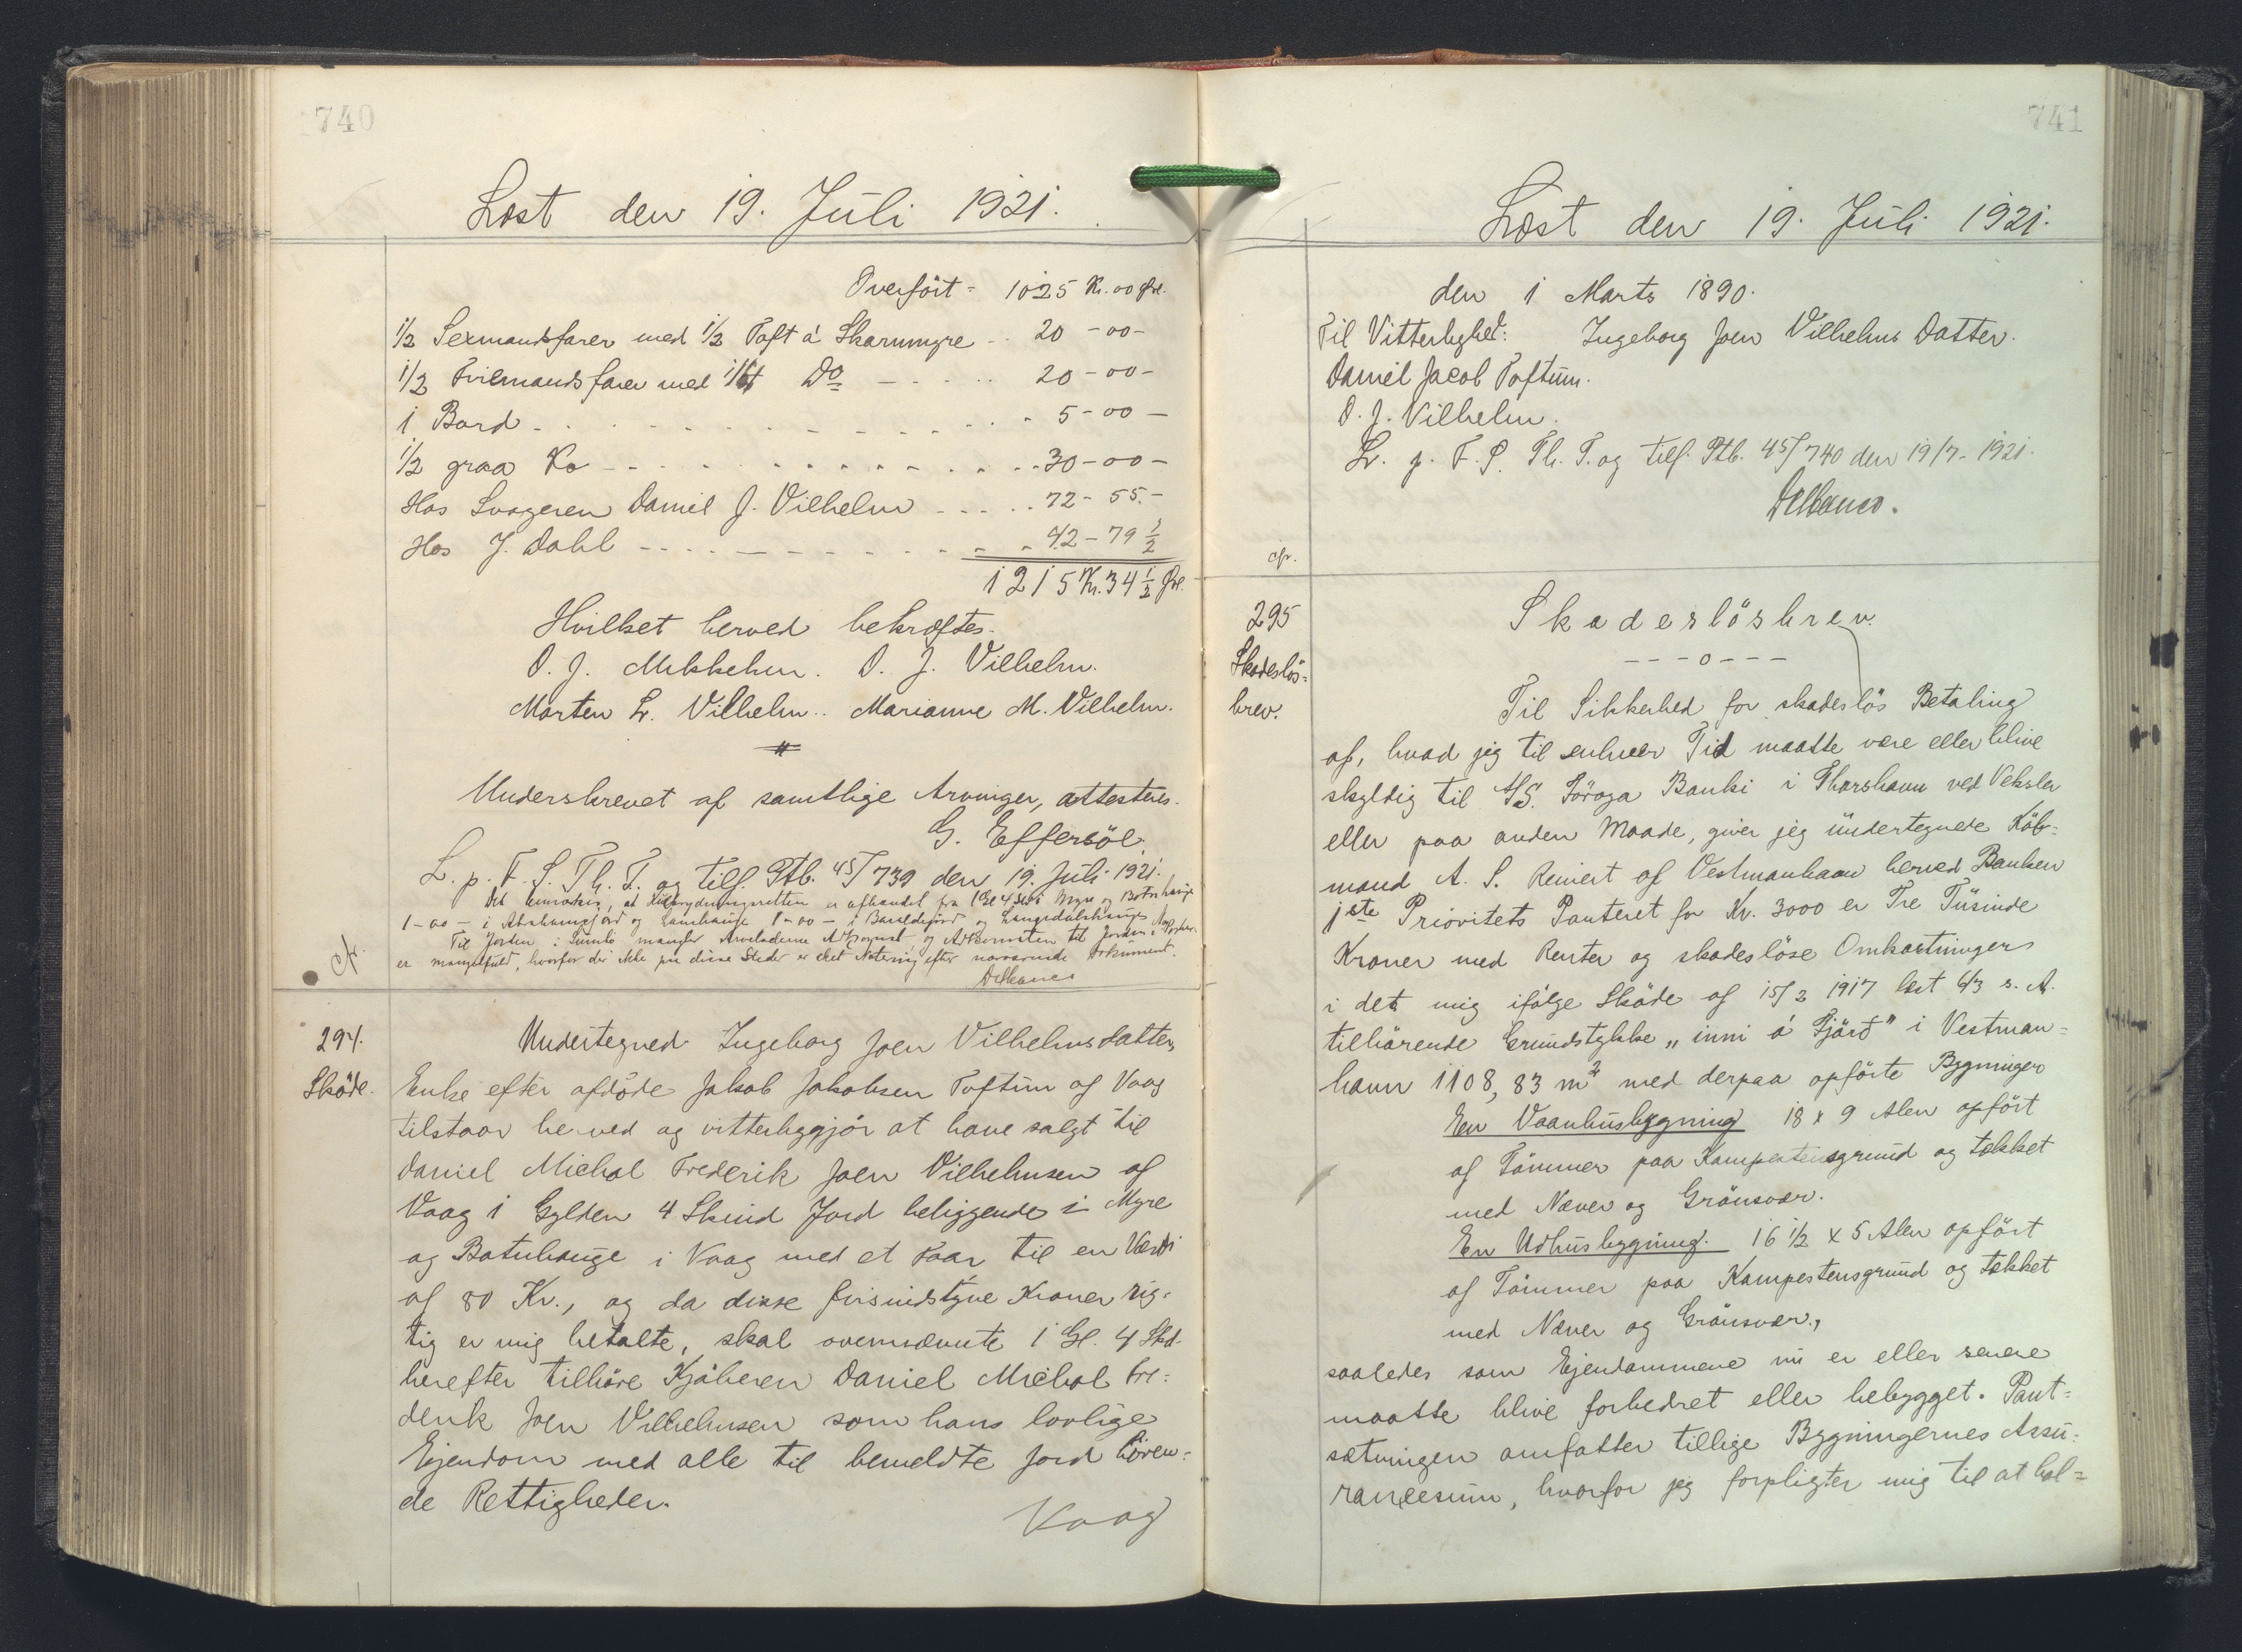 740
Læst den 19. Juli 1921.
Overfört = 1025 Kr. 00 Øre.
1/2 Sexmandsfarer med 1/2 Toft á Skarumyre - - 20 - 00 -
1/2 Trilmandsfarer med Do - - - - - 20 - 00 -
1 Bord - - - - - - - - 5 - 00 -
1/2 graa Ko - - - - - - - 30 - 00 -
Hos Svogeren Daniel J. Vilhelm - - - - 72 - 55. -
Hos J. Dahl - - - - - - - - 42 - 79 1/2
1215 Kr. 34 1/2 Øre.
Hvilket herved bekræftes.
O. J. Mikkelsen. D. J. Vilhelm.
Morten L. Vilhelm. Marianne M. Vilhelm.
Underskrevet af samtlige Arvinger, attesteres.
G. Effersöe.
L. p. F. S. Th. T. og tilf. Ptb. 45/739 den 19. Juli 1921.
Det bemærkes, at er afhændet fra 1 Gl 4 Sk i Myre og Botnhauge
1 - 00 - i og
Til Jorden i Sumbö mangler Arveladerne Adkomst, og Adkomsten til Jorden i
er mangelfuld, hvorfor der ikke paa disse Steder er sket Notering efter nærværende Dokument.
cfr.
294.
Sköde.
Undertegned Ingeborg Joen Vilhelmsdatter,
Enke efter afdöde Jakob Jakobsen Toftum af Vaag
tilstaar herved og vitterliggjör at have solgt til
Daniel Michal Frederik Joen Vilhelmsen af
Vaag 1 Gylden 4 Skind Jord beliggende i Myre
og Botnhauge i Vaag med et Faar til en Værdi
af 80 Kr., og da disse firsindstyve Kroner rig=
tig er mig betalte, skal ovennævnte 1 Gl. 4 Skd.
herefter tilhöre Kjöberen Daniel Michal Fre=
derik Joen Vilhelmsen som hans lovlige
Ejendom med alle til bemeldte Jord hören=
de Rettigheder.
Vaag
741
Læst den 19. Juli 1921.
den 1 Marts 1890.
Til Vitterlighed: Ingeborg Joen Vilhelms Datter.
Daniel Jacob Toftum.
D. J. Vilhelm.
L. p. F. S. Th. T. og tilf. Ptb. 45/740 den 19/7 - 1921.
cfr.
295
Skadeslös=
brev.
Skadeslösbrev.
- - - o - - -
Til Sikkerhed for skadeslös Betaling
af, hvad jeg til enhver Tid maatte være eller blive
skyldig til A/S. Föroya Banki i Thorshavn ved Veksler
eller paa anden Maade, giver jeg undertegnede Köb=
mand A. S. Reinert af Vestmanhavn herved Banken
1ste Prioritets Panteret for Kr. 3000 er Tre Tusinde
Kroner med Renter og skadeslöse Omkostninger
i det mig ifölge Sköde af 15/2 1917 læst 6/3 s. A.
tilhörende Grundstykke „inni á Fjörð" i Vestman=
havn 1108,83 m² med derpaa opförte Bygninger
En Vaanhusbygning 18 x 9 Alen opfört
af Tömmer paa Kampestensgrund og tækket
med Næver og Grönsvær.
En Udhusbygning. 16 1/2 x 5 Alen opfört
af Tömmer paa Kampestensgrund og tækket
med Næver og Grönsvær.,
saaledes som Ejendommene nu er eller senere
maatte blive forbedret eller bebygget. Pant=
sætningen omfatter tillige Bygningernes Assu=
rancesum, hvorfor jeg forpligter mig til at hol=